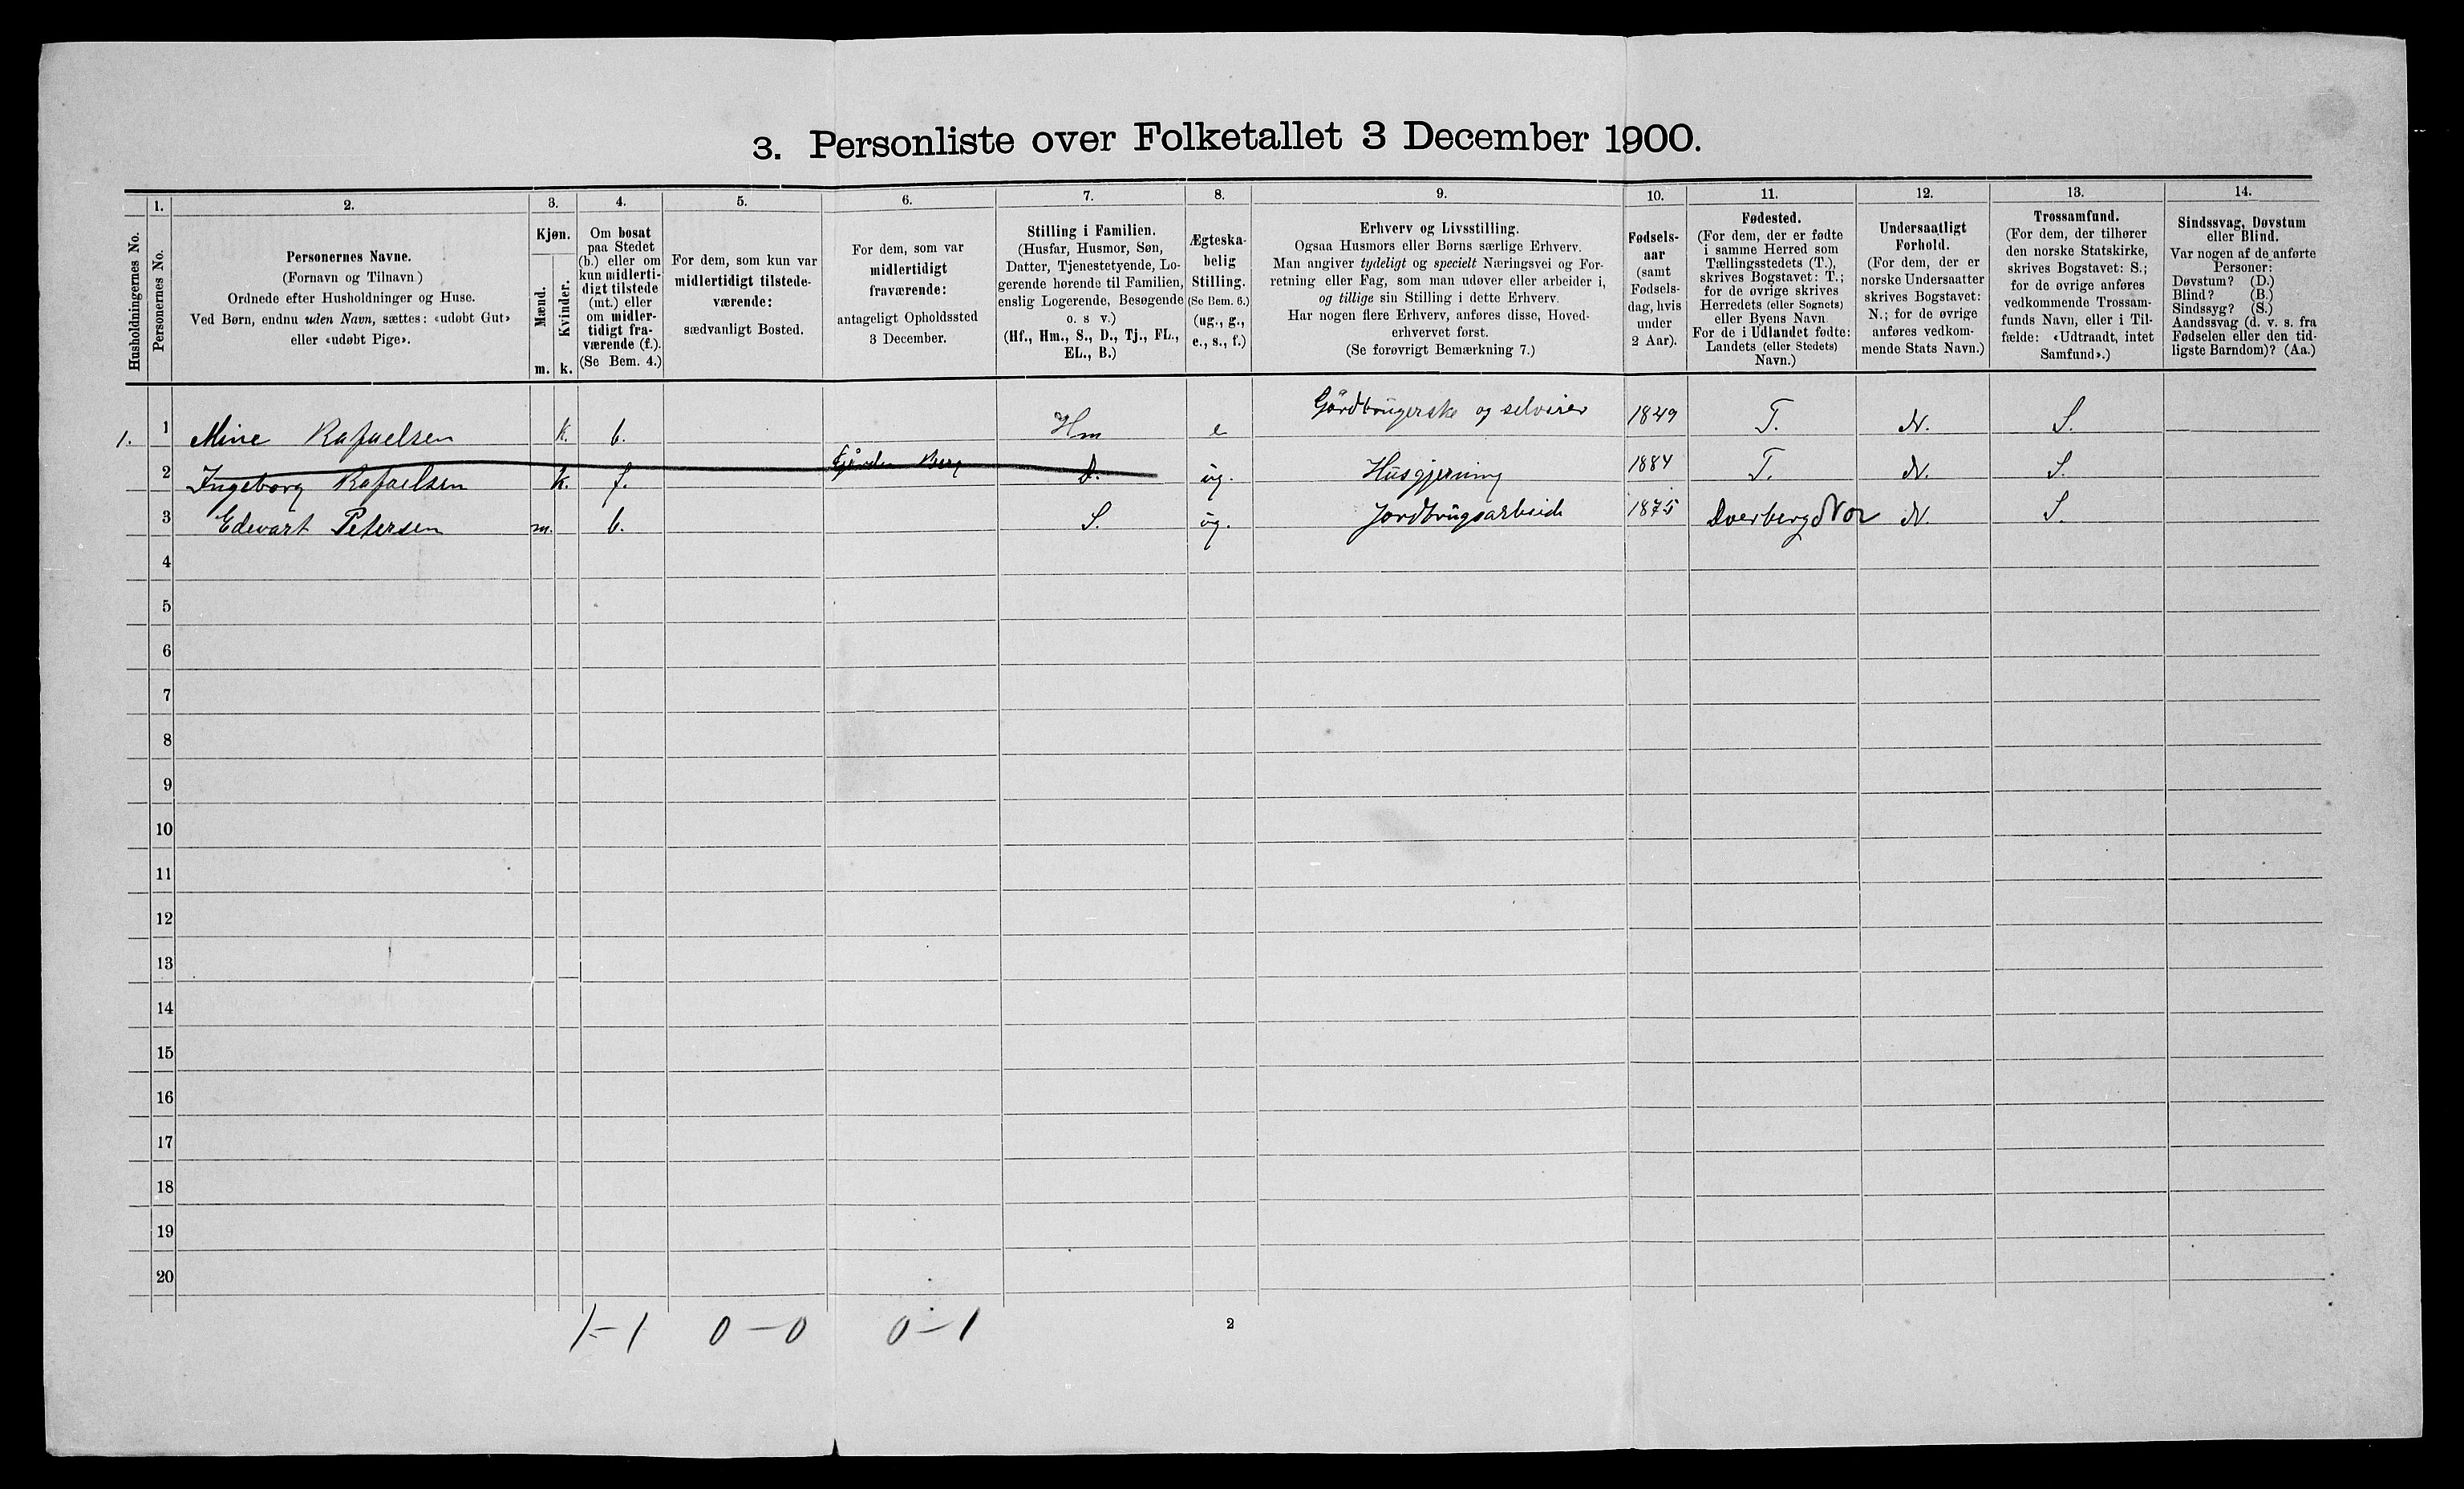 3. Personliste over Folketallet 3 December 1900.
1. 2. 3. 4. 5. 6. 7. 8. 9. 10. 11. 12. 13. 14.
Husholdningernes No.
Personernes No.
Personernes Navne.
(Fornavn og Tilnavn)
Ordnede efter Husholdninger og Huse.
Ved Børn, endnu uden Navn, sættes: «udøbt Gut»
eller «udøbt Pige».
Kjøn.
Mænd.
Kvinder.
m. k.
Om bosat
paa Stedet
(b.) eller om
kun midlerti-
digt tilstede
(mt.) eller
om midler-
tidigt fra-
værende (f.).
(Se Bem. 4.)
For dem, som kun var
midlertidigt tilstede-
værende:
sædvanligt Bosted.
For dem, som var
midlertidigt
fraværende:
antageligt Opholdssted
3 December.
Stilling i Familien.
(Husfar, Husmor, Søn,
Datter, Tjenestetyende, Lo-
gerende hørende til Familien,
enslig Logerende, Besøgende
o. s v.)
(Hf., Hm., S., D., Tj., FL.,
EL., B.)
Ægteska-
belig
Stilling.
(Se Bem. 6.)
(ug., g.,
e., s., f.)
Erhverv og Livsstilling.
Ogsaa Husmors eller Børns særlige Erhverv.
Man angiver tydeligt og specielt Næringsvei og For-
retning eller Fag, som man udøver eller arbeider i,
og tillige sin Stilling i dette Erhverv.
Har nogen flere Erhverv, anføres disse, Hoved-
erhvervet først.
(Se forøvrigt Bemærkning 7.)
Fødsels-
aar
(samt
Fødsels-
dag, hvis
under
2 Aar).
Fødested.
(For dem, der er fødte
i samme Herred som
Tællingsstedets (T.),
skrives Bogstavet: T.;
for de øvrige skrives
Herredets (eller Sognets)
eller Byens Navn.
For de i Udlandet fødte:
Landets (eller Stedets)
Navn.)
Undersaatligt
Forhold.
(For dem, der er
norske Undersaatter
skrives Bogstavet:
N.; for de øvrige
anføres vedkom-
mende Stats Navn.)
Trossamfund.
(For dem, der tilhører
den norske Statskirke,
skrives Bogstavet: S.;
for de øvrige anføres
vedkommende Trossam-
funds Navn, eller i Til-
fælde: «Udtraadt, intet
Samfund».)
Sindssvag, Døvstum
eller Blind.
Var nogen af de anførte
Personer:
Døvstum? (D.)
Blind? (B.)
Sindssyg? (S.)
Aandssvag (d. v. s. fra
Fødselen eller den tid-
ligste Barndom)? (Aa.)
1. 1 Mine Rafaelsen k. b. Hm e Gårdbrugerske og selveier 1849 T. N. S.
2 Ingeborg Rafaelsen k. f. Gården Berg D. ug. Husgjerning 1884 T. N. S.
3 Edevart Petersen m. b. S. ug. Jordbrugsarbeide 1875 Dverberg Nor N. S.
4
5
6
7
8
9
10
11
12
13
14
15
16
17
18
19
20
1-1 0-0 0-1
2